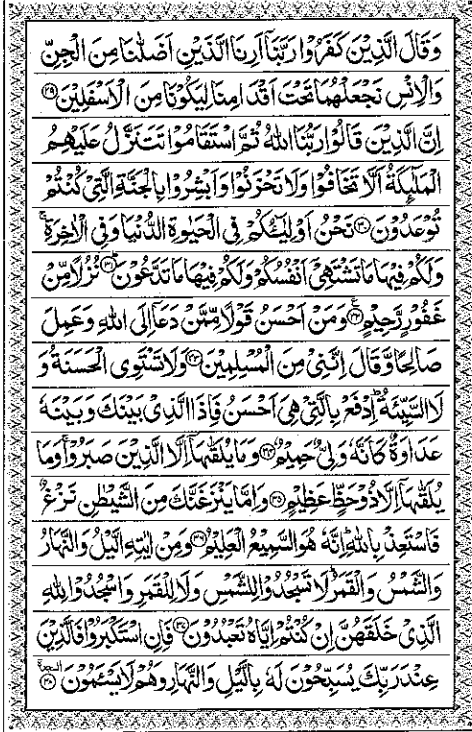 وَقَالَ الَّذِيْنَ كَفَرُوْا رَبَّنَاۤ اَرِنَا الَّذَيْنِ اَضَلّٰنَا مِنَ الْجِنِّ
وَالْاِنْسِ نَجْعَلْهُمَا تَحْتَ اَقْدَامِنَا لِيَكُوْنَا مِنَ الْاَسْفَلِيْنَ ۝۲۹
اِنَّ الَّذِيْنَ قَالُوْا رَبُّنَا اللّٰهُ ثُمَّ اسْتَقَامُوْا تَتَنَزَّلُ عَلَيْهِمُ
الْمَلٰٓئِكَةُ اَلَّا تَخَافُوْا وَلَا تَحْزَنُوْا وَاَبْشِرُوْا بِالْجَنَّةِ الَّتِيْ كُنْتُمْ
تُوْعَدُوْنَ ۝۳۰ نَحْنُ اَوْلِيٰٓؤُكُمْ فِي الْحَيٰوةِ الدُّنْيَا وَفِي الْاٰخِرَةِ ۚ
وَلَكُمْ فِيْهَا مَا تَشْتَهِيْۤ اَنْفُسُكُمْ وَلَكُمْ فِيْهَا مَا تَدَّعُوْنَ ۝۳۱ نُزُلًا مِّنْ
غَفُوْرٍ رَّحِيْمٍ ۝۳۲ ع وَمَنْ اَحْسَنُ قَوْلًا مِّمَّنْ دَعَاۤ اِلَى اللّٰهِ وَعَمِلَ
صَالِحًا وَّقَالَ اِنَّنِيْ مِنَ الْمُسْلِمِيْنَ ۝۳۳ وَلَا تَسْتَوِي الْحَسَنَةُ وَ
لَا السَّيِّئَةُ ؕ اِدْفَعْ بِالَّتِيْ هِيَ اَحْسَنُ فَاِذَا الَّذِيْ بَيْنَكَ وَبَيْنَهٗ
عَدَاوَةٌ كَاَنَّهٗ وَلِيٌّ حَمِيْمٌ ۝۳۴ وَمَا يُلَقّٰىهَاۤ اِلَّا الَّذِيْنَ صَبَرُوْا ۚ وَمَا
يُلَقّٰىهَاۤ اِلَّا ذُوْ حَظٍّ عَظِيْمٍ ۝۳۵ وَاِمَّا يَنْزَغَنَّكَ مِنَ الشَّيْطٰنِ نَزْغٌ
فَاسْتَعِذْ بِاللّٰهِ ؕ اِنَّهٗ هُوَ السَّمِيْعُ الْعَلِيْمُ ۝۳۶ وَمِنْ اٰيٰتِهِ الَّيْلُ وَالنَّهَارُ
وَالشَّمْسُ وَالْقَمَرُ ؕ لَا تَسْجُدُوْا لِلشَّمْسِ وَلَا لِلْقَمَرِ وَاسْجُدُوْا لِلّٰهِ
الَّذِيْ خَلَقَهُنَّ اِنْ كُنْتُمْ اِيَّاهُ تَعْبُدُوْنَ ۝۳۷ فَاِنِ اسْتَكْبَرُوْا فَالَّذِيْنَ
عِنْدَ رَبِّكَ يُسَبِّحُوْنَ لَهٗ بِالَّيْلِ وَالنَّهَارِ وَهُمْ لَا يَسْـَٔمُوْنَ ۝۳۸ السجدة